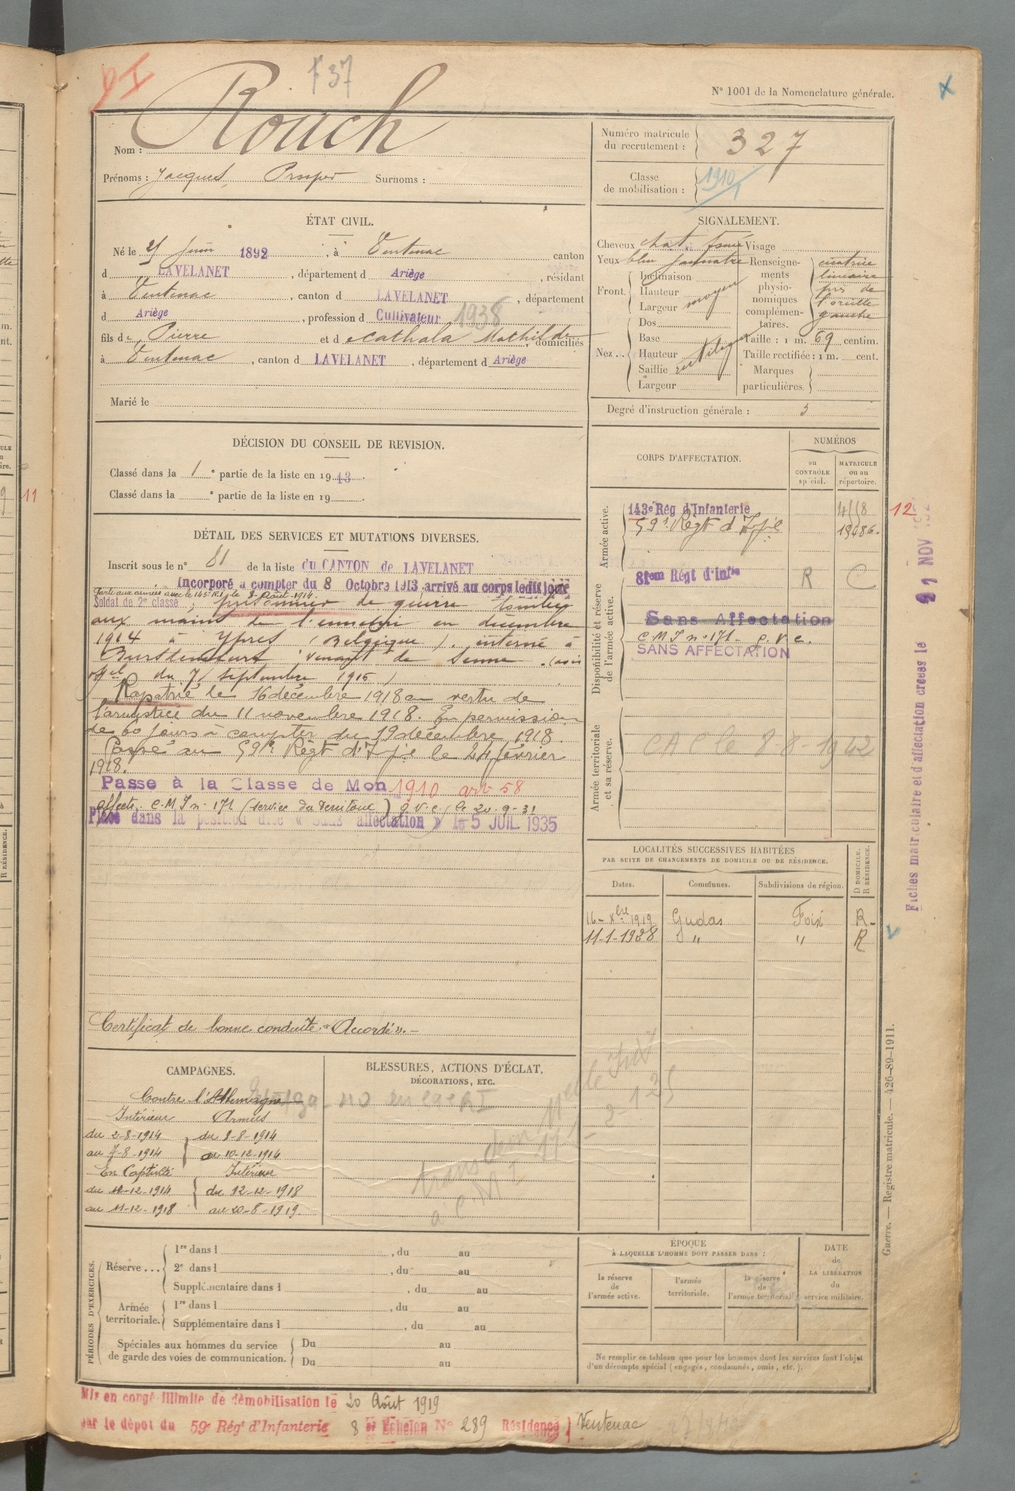 F 37
N° 1001 de la Nomenclature générale.
Nom : Rouch
Prénoms : Jacques, Prosper Surnoms :
Numéro matricule du recrutement : 327
Classe de mobilisation : 1910
ÉTAT CIVIL.
Né le 25 Juin 1892, à Ventenac canton
d LAVELANET, département d Ariège, résidant
à Ventenac, canton d LAVELANET, département
d Ariège, profession d Cultivateur 1938
fils de Pierre et de Cathala Mathilde, domiciliés
à Ventenac, canton d LAVELANET, département d Ariège
Marié le
SIGNALEMENT.
Cheveux chat. foncé Visage
Yeux bleu jaunatre
Front. Inclinaison
Hauteur
Largeur moyen
Nez... Dos
Base
Hauteur
Saillie
Largeur
Renseignements physionomiques complémentaires. cicatrice linéaire près de l'oreille gauche
Taille : 1 m. 69 centim.
Taille rectifiée : 1 m. cent.
Marques particulières.
Degré d'instruction générale : 3
DÉCISION DU CONSEIL DE REVISION.
Classé dans la 1e partie de la liste en 1913.
Classé dans la e partie de la liste en 19
DÉTAIL DES SERVICES ET MUTATIONS DIVERSES.
Inscrit sous le n° 51 de la liste du CANTON de LAVELANET
Incorporé à compter du 8 Octobre 1913 arrivé au corps ledit jour
Parti aux armées avec le 143e R.I. le 8 Août 1914.
Soldat de 2e classe, prisonnier de guerre tombé
aux mains de l'ennemi en décembre
1914 à Ypres (Belgique), interné à
venant de Senne. (avis
du 7 Septembre 1915)
Rapatrié le 16 décembre 1918 en vertu de
l'armistice du 11 novembre 1918. En permission
de 60 jours à compter du 19 décembre 1918.
Passé au 59e Régt d'Infie le 24 février
1918.
Passé à la Classe de Mon 1910 art 58
Affecté C.M.I n° 171 (Service du territoire) G.V.C. le 20-9-31
Placé dans la position dite « Sans affectation » le 5 JUIL 1935
Certificat de bonne conduite "Accordé".
CORPS D'AFFECTATION.
NUMÉROS
au CONTRÔLE spécial.
MATRICULE ou au répertoire.
Armée active.
143e Rég d'Infanterie 4118
59e Régt d'Infie 19486.
12
Disponibilité et réserve de l'armée active.
81em Régt d'Infie R C
Sans Affectation
C.M.I n° 171. g.v.c.
SANS AFFECTATION
Armée territoriale et sa réserve.
CAC le 8 1942
Fiches matriculaire et d'affectation créées le 21 NOV
LOCALITÉS SUCCESSIVES HABITÉES
PAR SUITE DE CHANGEMENTS DE DOMICILE OU DE RÉSIDENCE.
Dates. Communes. Subdivisions de région. D DOMICILE. R RÉSIDENCE.
16-Xbre 1919 Gudas Foix R-
11-1-1928 " " R
CAMPAGNES.
Contre l'Allemagne
Intérieur Armées
du 2-8-1914 du 8-8-1914
au 7-8-1914 au 10-12-1914
En Captivité Intérieur
du 11-12-1914 du 12-12-1918
au 11-12-1918 au 20-8-1919.
BLESSURES, ACTIONS D'ÉCLAT,
DÉCORATIONS, ETC.
PÉRIODES D'EXERCICES.
Réserve... 1re dans l , du au
2e dans l , du au
Supplémentaire dans l , du au
Armée territoriale. 1re dans l , du au
Supplémentaire dans l , du au
Spéciales aux hommes du service de garde des voies de communication. Du au
Du au
ÉPOQUE
À LAQUELLE L'HOMME DOIT PASSER DANS :
la réserve de l'armée active.
l'armée territoriale.
la réserve de l'armée territoriale
DATE de LA LIBÉRATION du service militaire.
Ne remplir ce tableau que pour les hommes dont les services font l'objet
d'un décompte spécial (engagés, condamnés, omis, etc.).
Guerre. — Registre matricule. — 426-89-1911.
Mis en congé illimité de démobilisation le 20 Août 1919
par le dépôt du 59e Rég' d'Infanterie 8 e Echelon N° 289 Résidence Ventenac